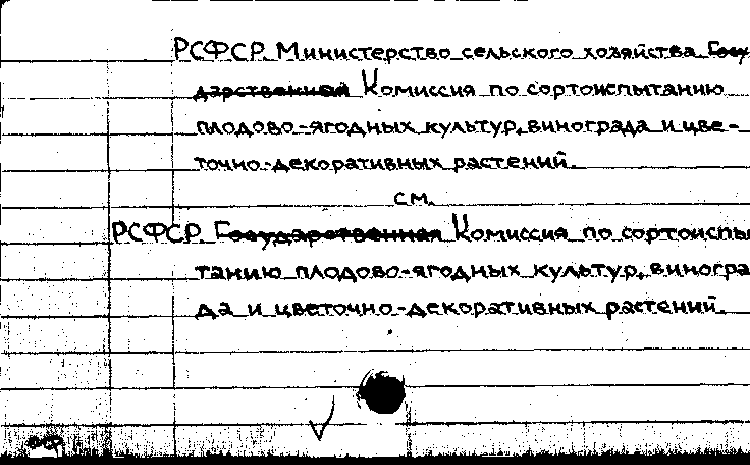 РСФСР. Министерство сельского хозяйства Госу
дарственная Комиссия по сортоиспытанию
плодово-ягодных культур, винограда и цве-
точно-декоративных растений.
см.
РСФСР. Государственная Комиссия по сортоиспы
танию плодово-ягодных культур, виногра
да и цветочно-декоративных растений.